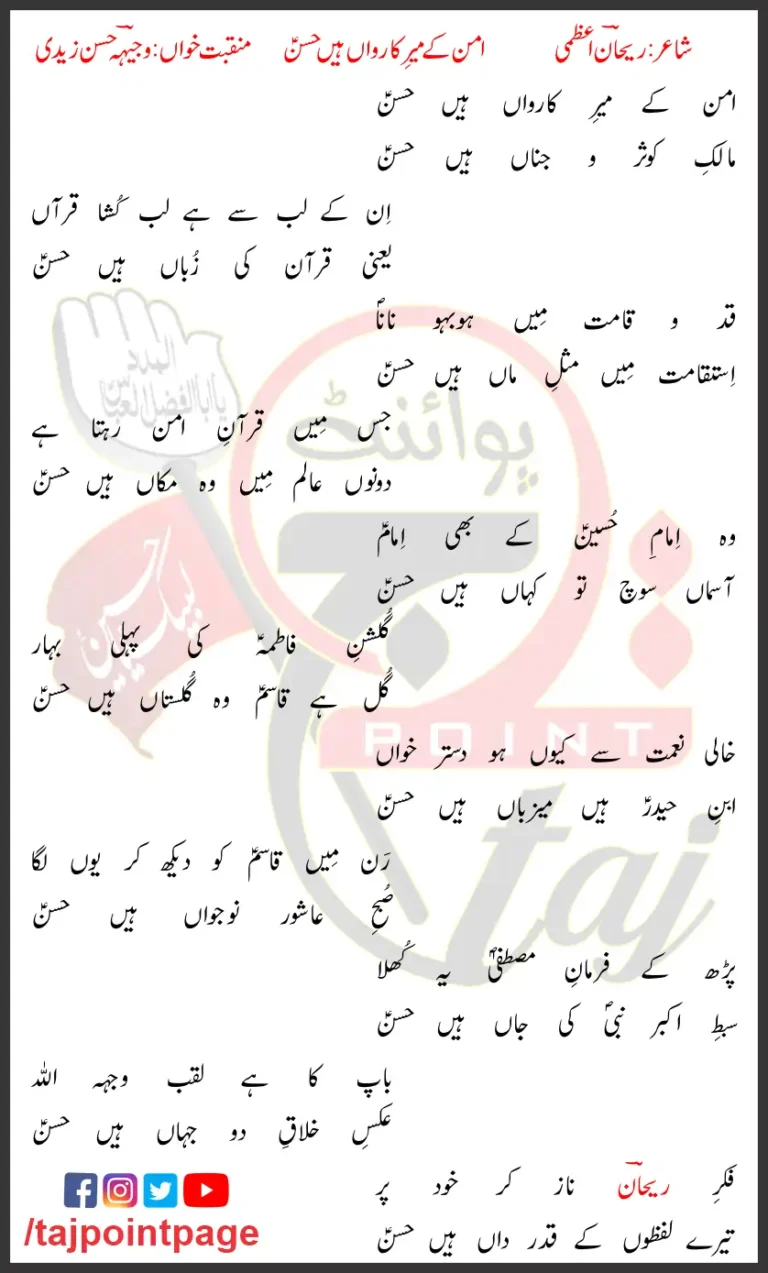 شاعر: ریحانؔ اعظمی امن کے میرِ کارواں ہیں حسنؑ منقبت خواں: وجیہہ حسن زیدی
امن کے میرِ کارواں ہیں حسنؑ
مالکِ کوثر و جناں ہیں حسنؑ
اِن کے لب سے ہے لب کُشا قرآں
یعنی قرآن کی زُباں ہیں حسنؑ
قد و قامت مِیں ہوبہو ناناؐ
اِستقامت مِیں مثلِ ماں ہیں حسنؑ
جس مِیں قرآنِ امن رہتا ہے
دونوں عالم مِیں وہ مکاں ہیں حسنؑ
وہ اِمامِ حُسینؑ کے بھی اِمامؑ
آسماں سوچ تو کہاں ہیں حسنؑ
گُلشنِ فاطمہؑ کی پہلی بہار
گُل ہے قاسمؑ وہ گُلستاں ہیں حسنؑ
خالی نعمت سے کیوں ہو دستر خواں
ابنِ حیدرؑ ہیں میزباں ہیں حسنؑ
رَن مِیں قاسمؑ کو دیکھ کر یوں لگا
صُبحِ عاشور نوجواں ہیں حسنؑ
پڑھ کے فرمانِ مصطفیٰؐ یہ کُھلا
سبطِ اکبر نبیؐ کی جاں ہیں حسنؑ
باپ کا ہے لقب وجہہ اللہ
عکسِ خلاقِ دو جہاں ہیں حسنؑ
فکرِ ریحانؔ ناز کر خود پر
تیرے لفظوں کے قدر داں ہیں حسنؑ
/tajpointpage
المدد
یا اباالفضل العباسؑ
لبیک یا حسینؑ
پوائنٹ
تاج
POINT
taj